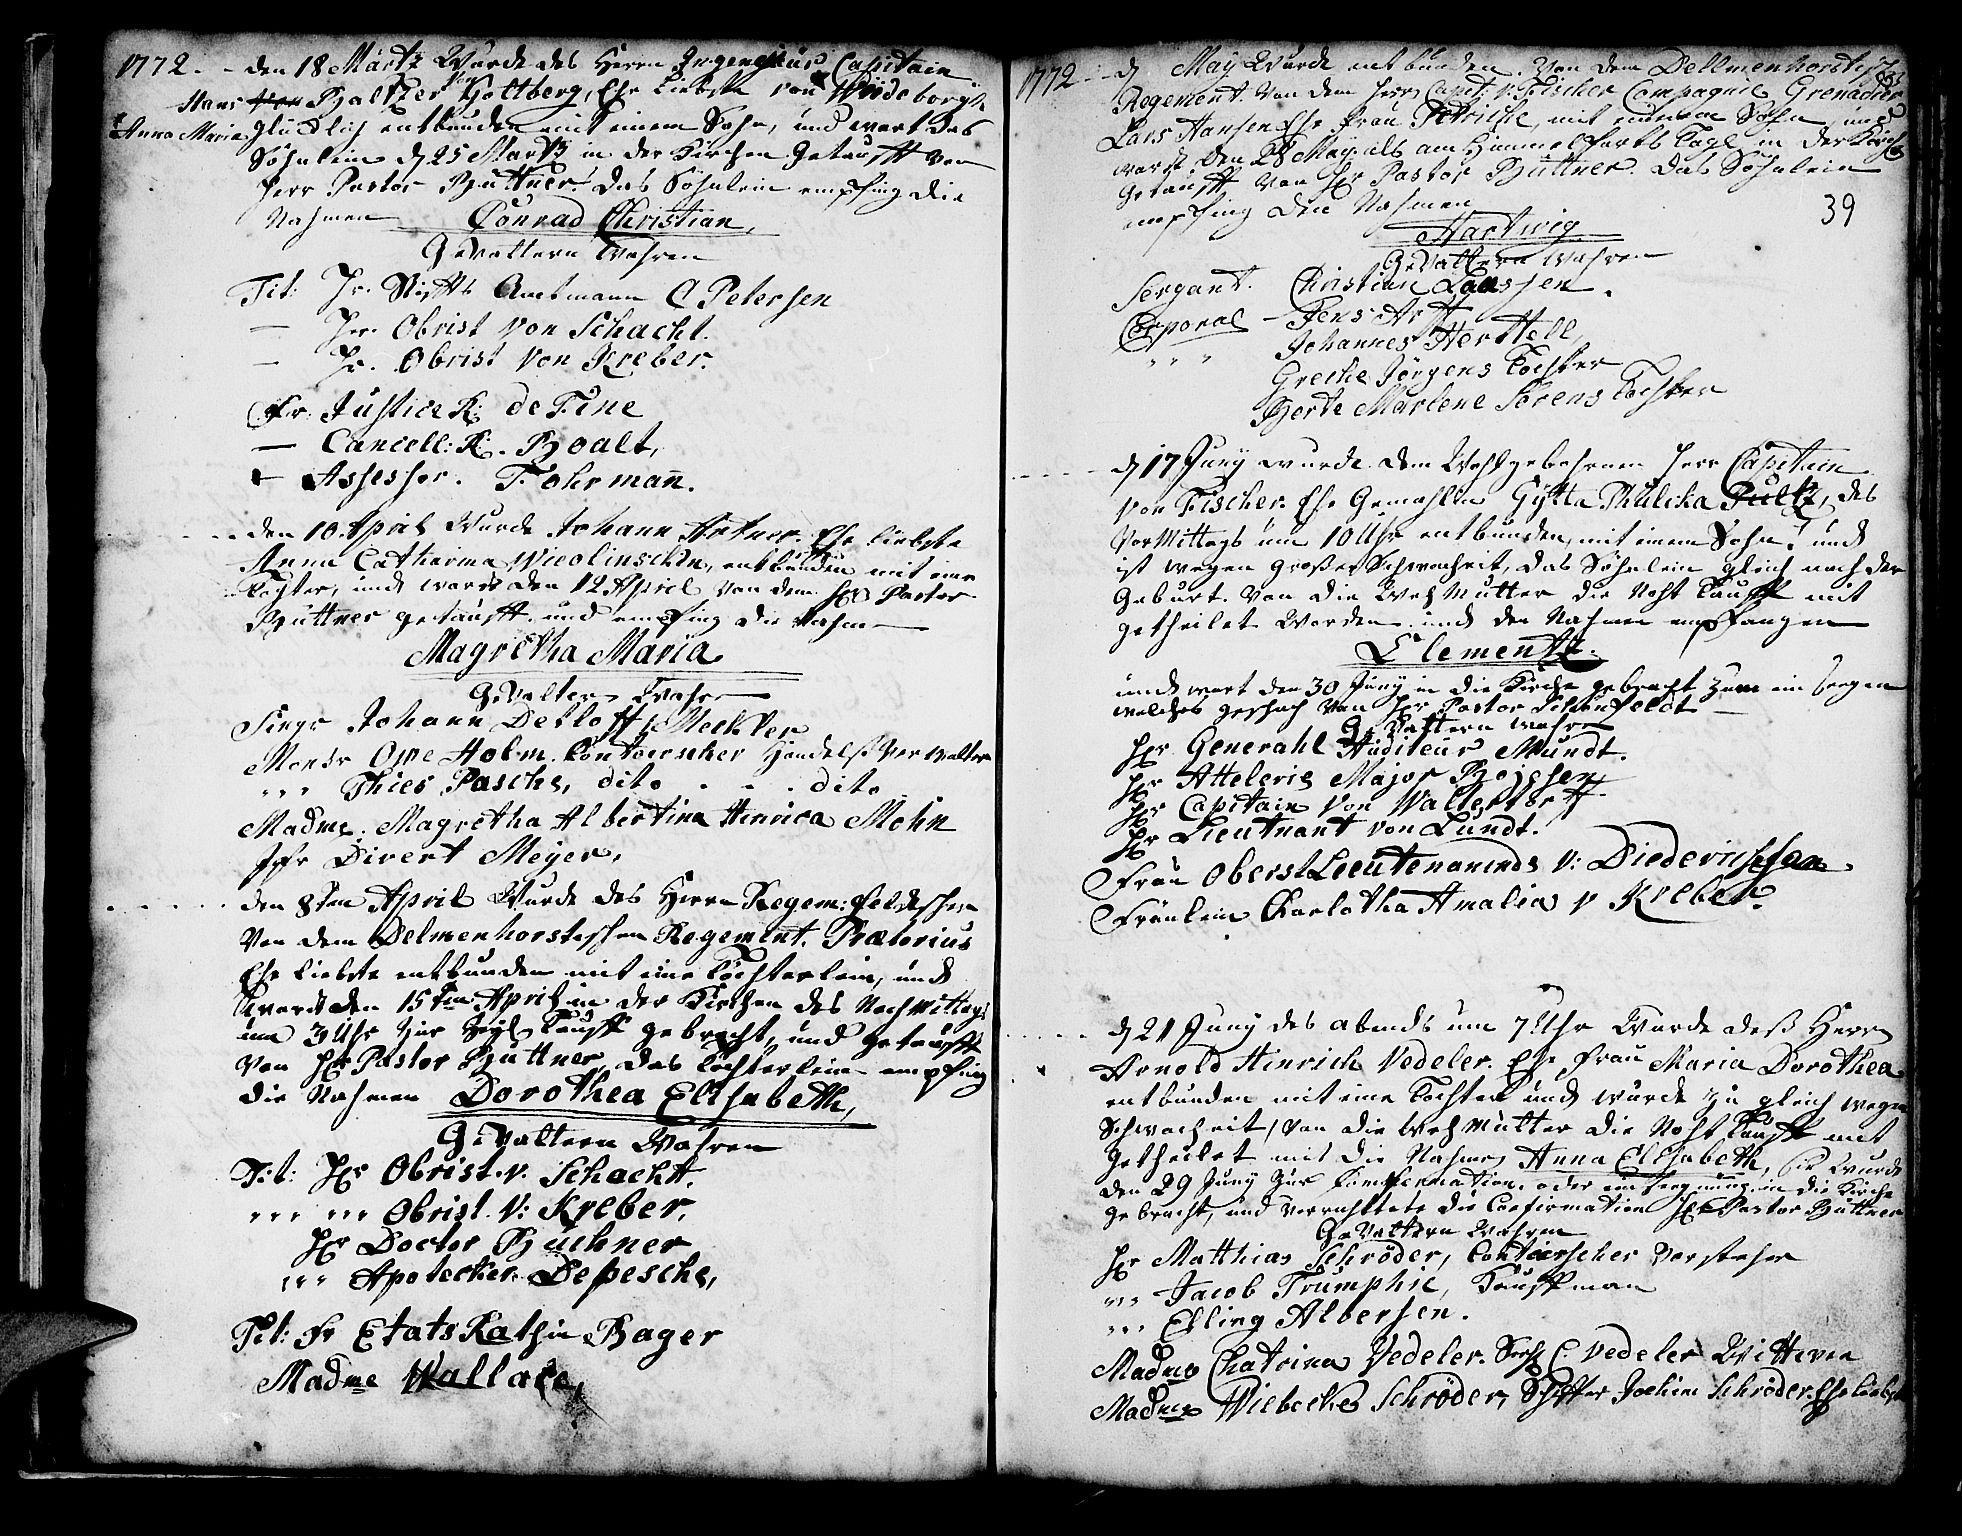 1772. - den 18 Märtz Wurde des Herrn Ingenejeur Capitain
Hans Von Baltzer von Gottberg, Ehe Liebste von Wiedeborgh
Anna Maria glücklich entbunden mit einem Sohn, und wart das
Söhnlein d 25 Martz in der Kirchen Getaufft von
Herr Pastor Büttner. Das Söhnlein empfing die
Nahmen Conrad Christian,
Gevattern Wahren
Tit: Hr. Stiffts Amtmann C Petersen
— Hr. Obrist Von Schacht.
— Hr. Obrist Von Kreber.
Fr. Justice R: de Fine
— Cancell: R. Boalt,
— Assessor. Fohrmann.
den 10 April Wurde Johann Artner Ehe liebste
Anna Catharina Nicolinschen, entbunden mit eine
Tochter, und wardt den 12 April von dem Hr Pastor
Büttner getaufft und empfing die Nahmen
Magretha Maria
Gevattern Wahren
Singr Johann Detloff Meckler
Monsr Ove Holm Contoirscher Handelss Verwalter
" " " Thies Pasche, dito . - . dito
Madme. Magretha Albertina Hinrica Mohn
Jfr Divert Meyer,
den 8ten April Wurde des Herrn Regem: feldscher
Von dem Delmenhorstischen Regement. Prætorius
Ehe liebste entbunden mit eine Töchterlein, und
wardt den 15ten April in der Kirchen des Nachmittags
um 3 Uhr zur heyl Tauff gebracht, und getaufft
Von Hr Pastor Büttner, das Töchterlein empfing
die Nahmen Dorothea Elisabeth,
Gevattern Wahren
Tit: Hr Obrist v. Schacht.
" " " " " " Obrist. V: Kreber,
Hr Doctor Büchner
" " " Apotecker. Depesche,
Tit: Fr EtatsRathin Bager
Madme Wallace,
1772 - d May Wurde entbunden Von dem Dellmenhorstischen
Regement Von dem Herr Capit: v. Fischer Compagnie Grenadier
Lars Hansen Ehe frau Petriche, mit einem Sohn und
wardt den 28 May als am Himmelfarts Tage in der Kirche
getaufft Von Hr Pastor Büttner. Das Söhnlein
empfing den Nahmen
39
Hartwig
Gevattern wahren
Sergant. Christian Laussen.
Corporal - Jens Art
" " " Johannes Herttell,
Grethe Jörgens Tochter
Berte Marlene Sörens Tochter
d 17 Juny wurde dem Wohlgebohrnen Herr Capitain
von Fischer. Ehe Gemahlin Gytta Thulcka Pultz, des
VorMittags um 10 Uhr entbunden, mit einem Sohn, und
ist wegen grosser Schwachheit, das Söhnlein gleich nach der
Geburt. Von die WehMutter die Noht Tauffe mit
getheilet Worden. und den Nahmen empfangen
Clementz.
und wart den 30 Juny in die Kirche gebracht zum ein seegen
welches geschach von Hr Pastor Schönfeldt
Gevattern wahren
Hr Generahl Auditeur Mundt.
Hr Attelerie Major Boyssen
Hr Capitain Von Walterstorff
Hr Lieutnant von Lundt.
Frau Oberst Lieutenantinds V: Diederichssen.
Fräulein Charlotha Amalia v Kreber.
d 21 Juny des abends um 7 Uhr Wurde dess Herrn
Arnold Hinrich Vedeler. Ehe frau Maria Dorothea
entbunden mit eine Tochter und wurde zu gleich wegen
Schwacheit, Von die WehMutter die Noht Tauff mit
getheilet mit die Nahmen Anna Elisabeth, sie Wurde
den 29 Juny zur Confirmation, oder ein seegnung in die Kirche
gebracht, und verrichtete die Confirmation Hr Pastor Büttner
Gevattern Wahren
Hr Matthias Schröder, Contoirscher Vorsteher
" " Jacob Trumphie, Kauffman
" " " Elling Albersen.
Madme Chatrina Vedeler. Seel C. Vedeler Wittwen
Madme Wiebecke Schröder, Schiffer Jochim Schröder Ehe liebste